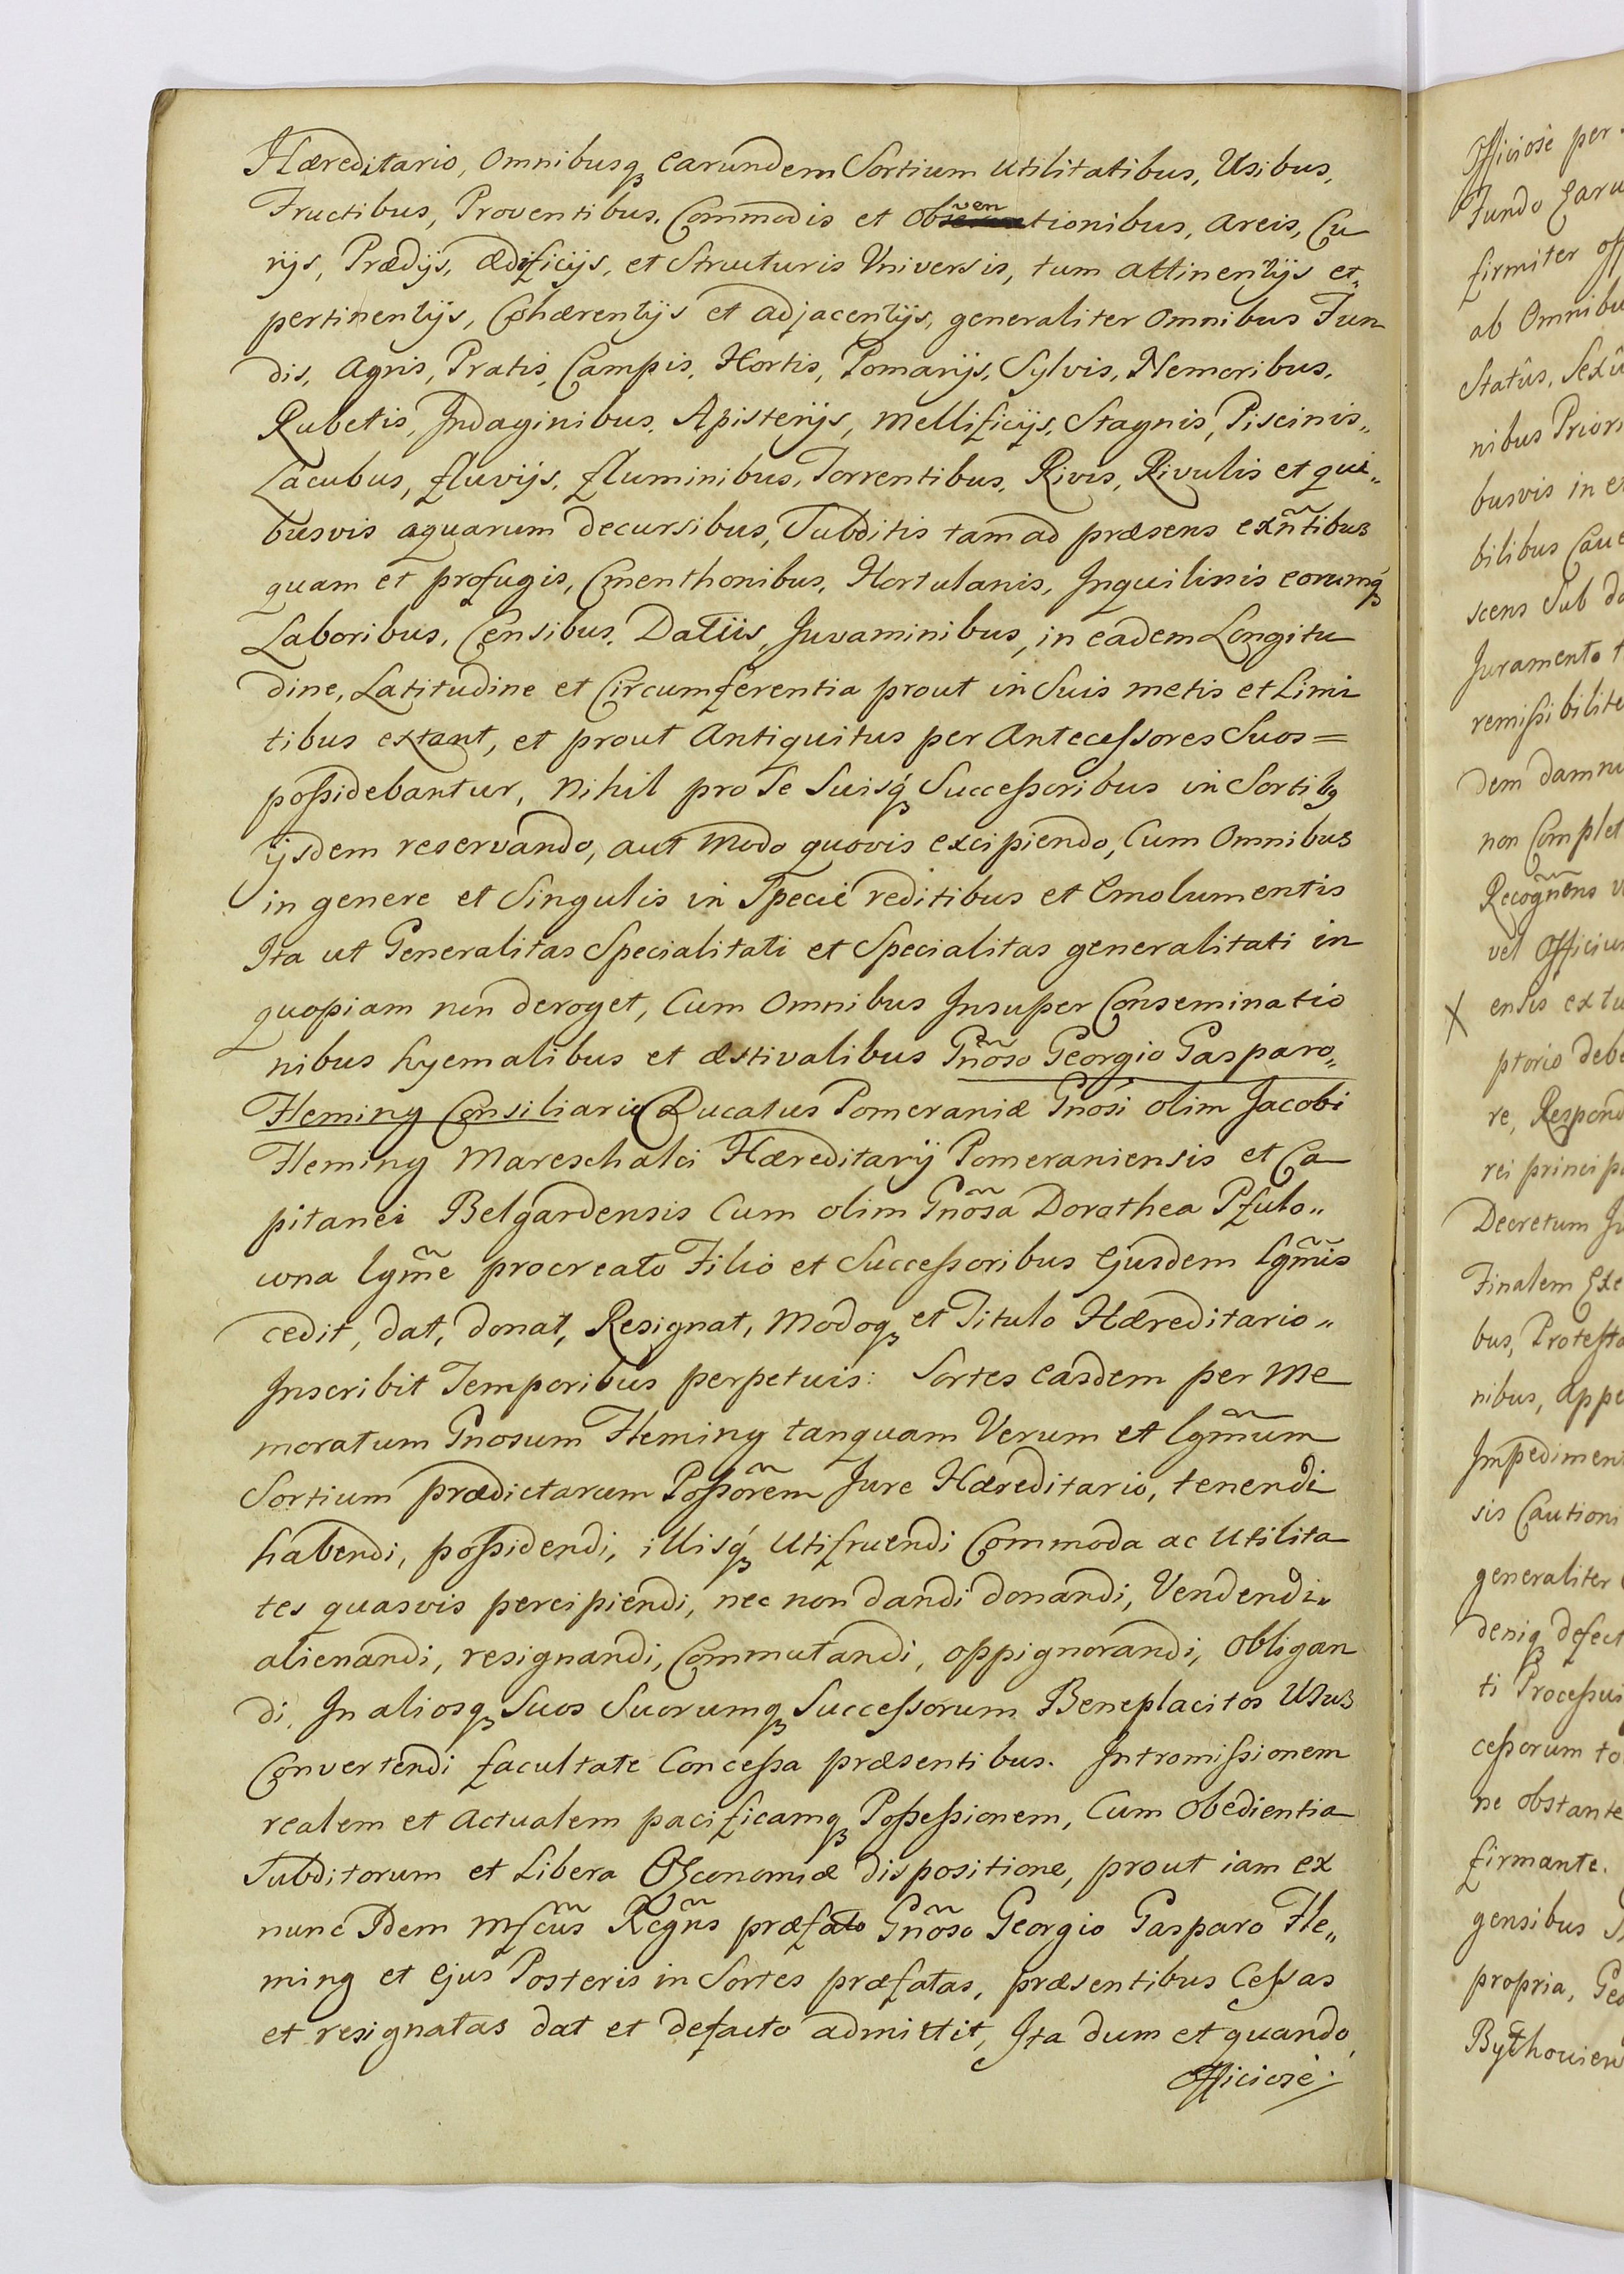 Hæreditario, Omnibusq₃ earundem Sortium Utilitatibus, Usibus,
Fructibus, Proventibus, Commodis et Obventionibus, Areis, Cu
rijs, Prædijs, ædificijs, et Structuris Universis, tum attinentijs et
pertinentijs, Cohærentijs et adjacentijs, generaliter Omnibus Fun
dis, Agris, Pratis, Campis, Hortis, Pomarijs, Sylvis, Nemoribus,
Rubetis, Indaginibus, Apisterijs, Mellificijs, Stagnis, Piscinis,,
Lacubus, fluvijs, fluminibus, Torrentibus, Rivis, Rivulis et qui,,
busvis aquarum decursibus, Subditis tam ad præsens exñtibus
quam et profugis, Cmenthonibus, Hortulanis, Inquilinis eorumq́₃
Laboribus, Censibus, Datiis, Juvaminibus, in eadem Longitu
dine, Latitudine et Circumferentia prout in Suis metis et Limi
tibus extant, et prout Antiquitus per Antecessores Suos=
possidebantur, Nihil pro Se Suisq́₃ Successoribus in Sortib9
ijsdem reservando, aut Modo quovis excipiendo, Cum Omnibus
in genere et Singulis in Specie reditibus et Emolumentis
Ita ut Generalitas Specialitati et Specialitas generalitati in
quopiam non deroget, Cum Omnibus Insuper Conseminatio
nibus hyemalibus et æstivalibus Gñoso Georgio Gasparo,,
Fleming Consiliario Ducatus Pomeraniæ Gnosi olim Jacobi
Fleming Mareschalci Hæreditarij Pomeraniensis et Ca
pitanei Belgardensis Cum olim Gñosa Dorothea Pfulo,,
wna lgm̃e procreato Filio et Successoribus Ejusdem lgm̃is
cedit, dat, donat, Resignat, Modoq₃ et Titulo Hæreditario,,
Inscribit Temporibus perpetuis: Sortes easdem per Me
moratum Gnosum Fleming tanquam Verum et lgm̃um
Sortium prædictarum Possorẽm Jure Hæreditario, tenendi
habendi, possidendi, illisq́₃ Utifruendi Commoda ac Utilita
tes quasvis percipiendi, nec non dandi donandi, Vendendi,,
alienandi, resignandi, Commutandi, oppignorandi, Obligan
di, In aliosq₃ Suos Suorumq₃ Successorum Beneplacitos Usus
Convertendi facultate Concessa præsentibus. Intromissionem
realem et Actualem pacificamq₃ Possessionem, Cum Obedientia
Subditorum et Libera Œconomiæ dispositione, prout iam ex
nunc Idem Mfcũs Rcgñs præfato Gñoso Georgio Gasparo Fle,,
ming et Ejus Posteris in Sortes præfatas, præsentibus Cessas
et resignatas dat et defacto admittit, Ita dum et quando
Officiosè
Officiosè per
Fundo Earu
firmiter off
ab Omnibu
Statûs, Sexû
nibus Priori
busvis in e
bilibus Cave
scens Sub da
Juramento t
remissibilite
dem damni
non Complet
Recogñens
vel Officiu
ensis extu
ptorio debe
re, Respond
rei principa
Decretum Ju
Finalem Exe
bus, Protesta
nibus, appe
Impediment
sis Cautioni
generaliter
deniq₃ defect
ti Processui
cessorum to
ne obstante
firmante.
gensibus
propria, Geo